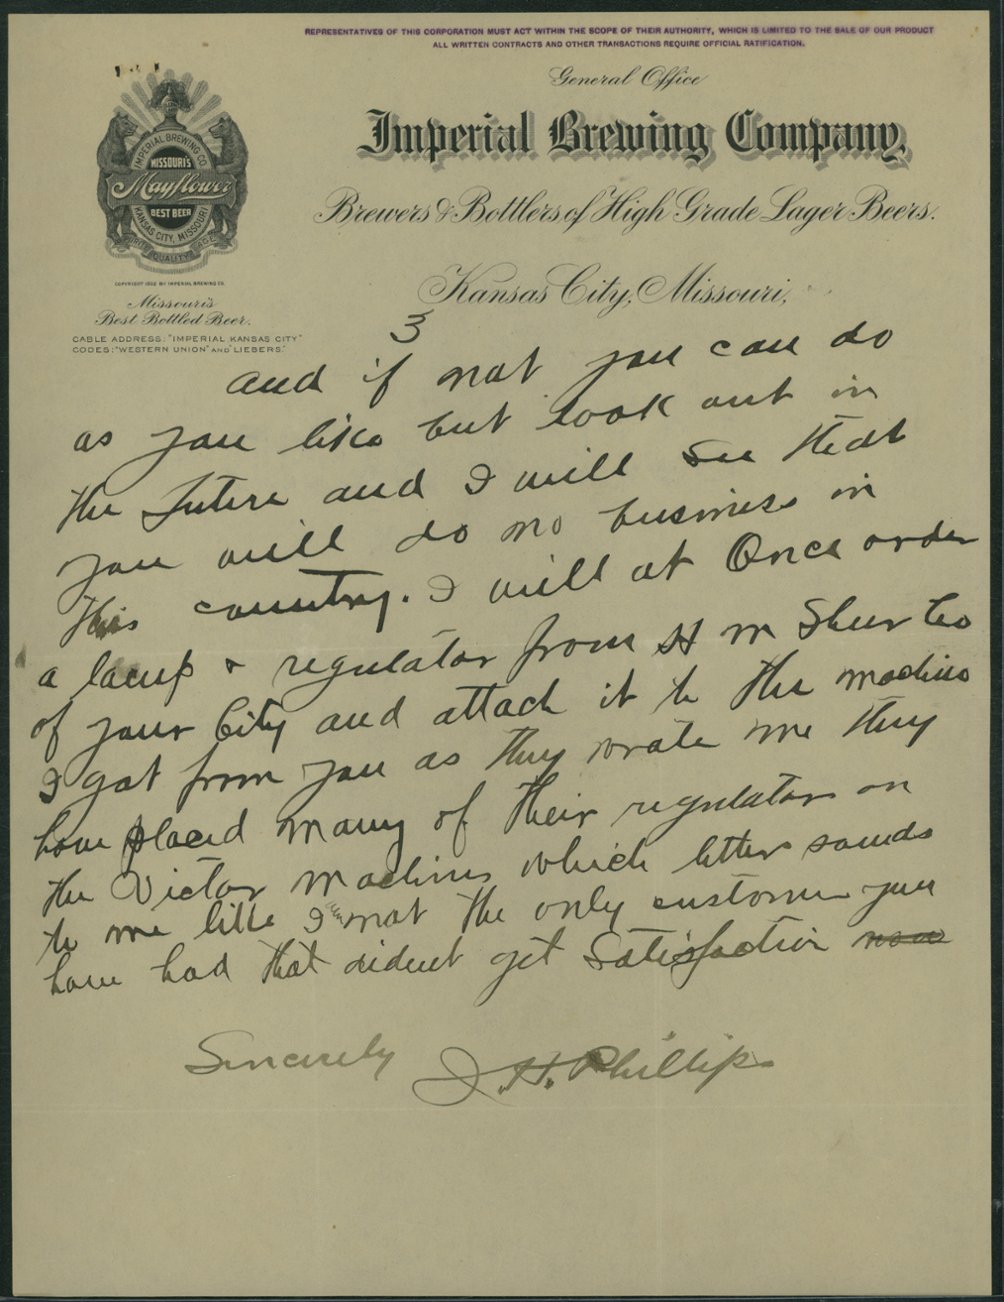 REPRESENTATIVES OF THIS CORPORATION MUST ACT WITHIN THE SCOPE OF THEIR AUTHORITY, WHICH IS LIMITED TO THE SALE OF OUR PRODUCT
ALL WRITTEN CONTRACTS AND OTHER TRANSACTIONS REQUIRE OFFICIAL RATIFICATION.
General Office
Imperial Brewing Company,
Brewers & Bottlers of High Grade Lager Beers.
Kansas City, Missouri,
IMPERIAL BREWING CO.
MISSOURI'S
Mayflower
BEST BEER
KANSAS CITY, MISSOURI
QUALITY AGE
COPYRIGHT 1902 BY IMPERIAL BREWING CO.
Missouri's
Best Bottled Beer.
CABLE ADDRESS: "IMPERIAL KANSAS CITY"
CODES: "WESTERN UNION" AND "LIEBERS."
3
and if not you can do
as you like but look out in
the future and I will see that
you will do no business in
this country. I will at Once order
a lamp & regulator from H M Shur Co
of your City and attach it to the machine
I got from you as they wrote me they
have placed many of their regulator on
the Victor machines which letter sounds
to me like I am not the only customer you
have had that dident get Satisfaction
Sincerely J. H. Phillips